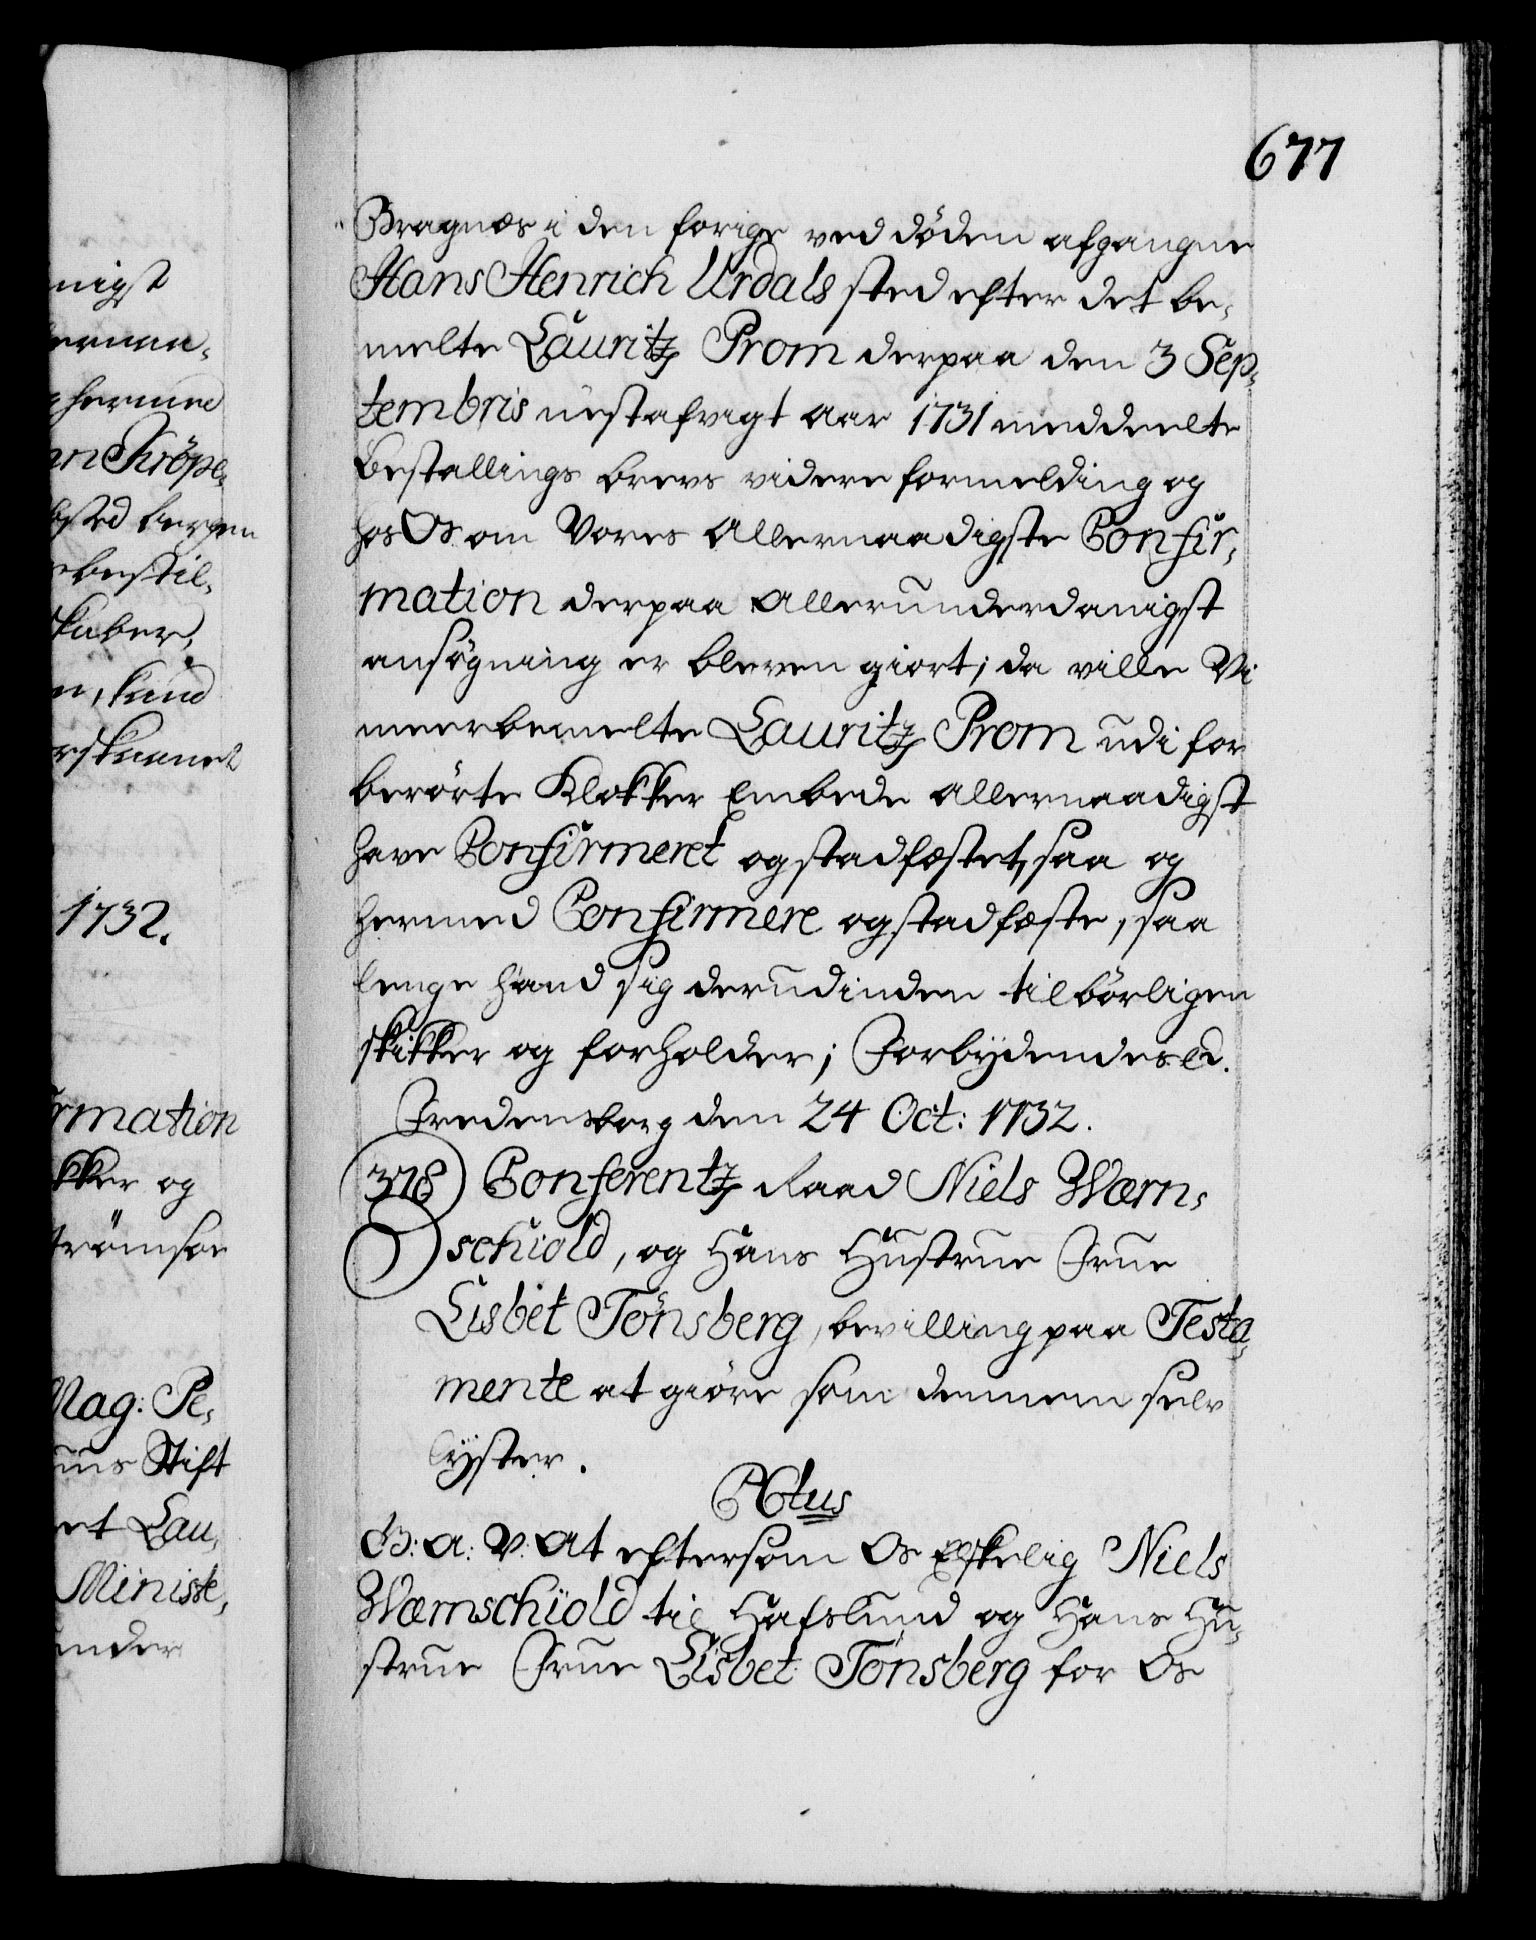 677
Bragnæs i den forige ved döden afgangne
Hans Henrich Urdals sted efter det be-
melte Lauritz Prom derpaa den 3 Sep-
tembris nestafvigt aar 1731 meddeelte
Bestallings brevs videre formelding og
hos Os om Vores Allernaadigste Confir-
mation derpaa Allerunderdanigst
ansögning er bleven giort; da ville Vi
meerbemelte Lauritz Prom udi for
berörte Klokker Embede allernaadigst
have Confirmeret og stadfæstet, saa og
hermed Confirmere og stadfæste, saa
lenge hand sig derudinden tilbörligen
skikker og forholder; Forbydendes &c.
Fredensborg den 24 Oct: 1732.
378) Conferentz Raad Niels Wærn-
schiold, og Hans Hustrue Frue
Lisbet Tönsberg, bevilling paa Testa-
mente at giöre som dennem selv
lyster.
C 6tus
G: A: V: At eftersom Os Elskelig Niels
Wærnschiold til Hafslund og Hans Hu-
strue Frue Lisbet Tönsberg for Os
nigst
hermed
bestil-
1732.
rmation
kker og
trömsöe
Mag: Pe-
uus Stift
et Lau-
Ministe-
under